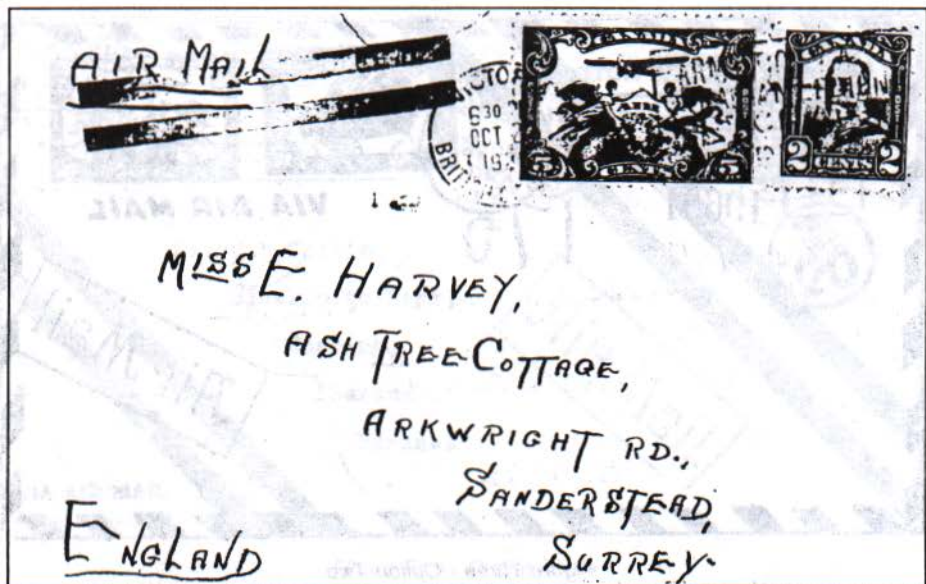 AIR MAIL
6 30
OCT
19
CANADA
5 CENTS 5
CANADA
2 CENTS 2
VIA AIR MAIL
MISS E. HARVEY,
ASH TREE COTTAGE,
ARKWRIGHT RD.,
SANDERSTEAD,
SURREY.
ENGLAND